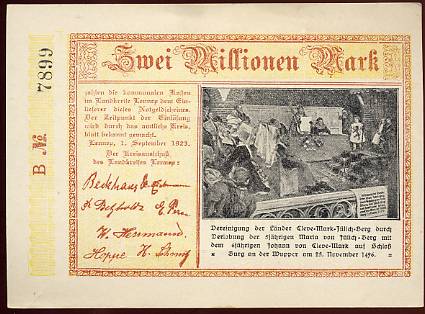 B № 7899
Zwei Millionen Mark
zahlen die kommunalen Kassen
im Landkreise Lennep dem Ein-
lieferer dieses Notgeldscheines.
Der Zeitpunkt der Einlösung
wird durch das amtliche Kreis-
blatt bekannt gemacht.
Lennep, 1. September 1923.
Der Kreisausschuß
des Landkreises Lennep:
Beckhaus
W. Herrmann
Hoppe H. Schmitz
Vereinigung der Länder Cleve-Mark-Jülich-Berg durch
Verlobung der 5jährigen Maria von Jülich-Berg mit
dem 6jährigen Johann von Cleve-Mark auf Schloß
* Burg an der Wupper am 25. November 1496. *